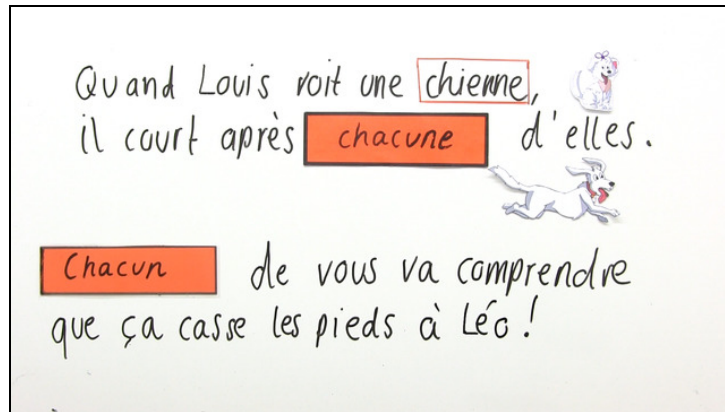 Quand Louis voit une chienne,
il court après chacune d'elles.
Chacun de vous va comprendre
que ça casse les pieds à Léo!